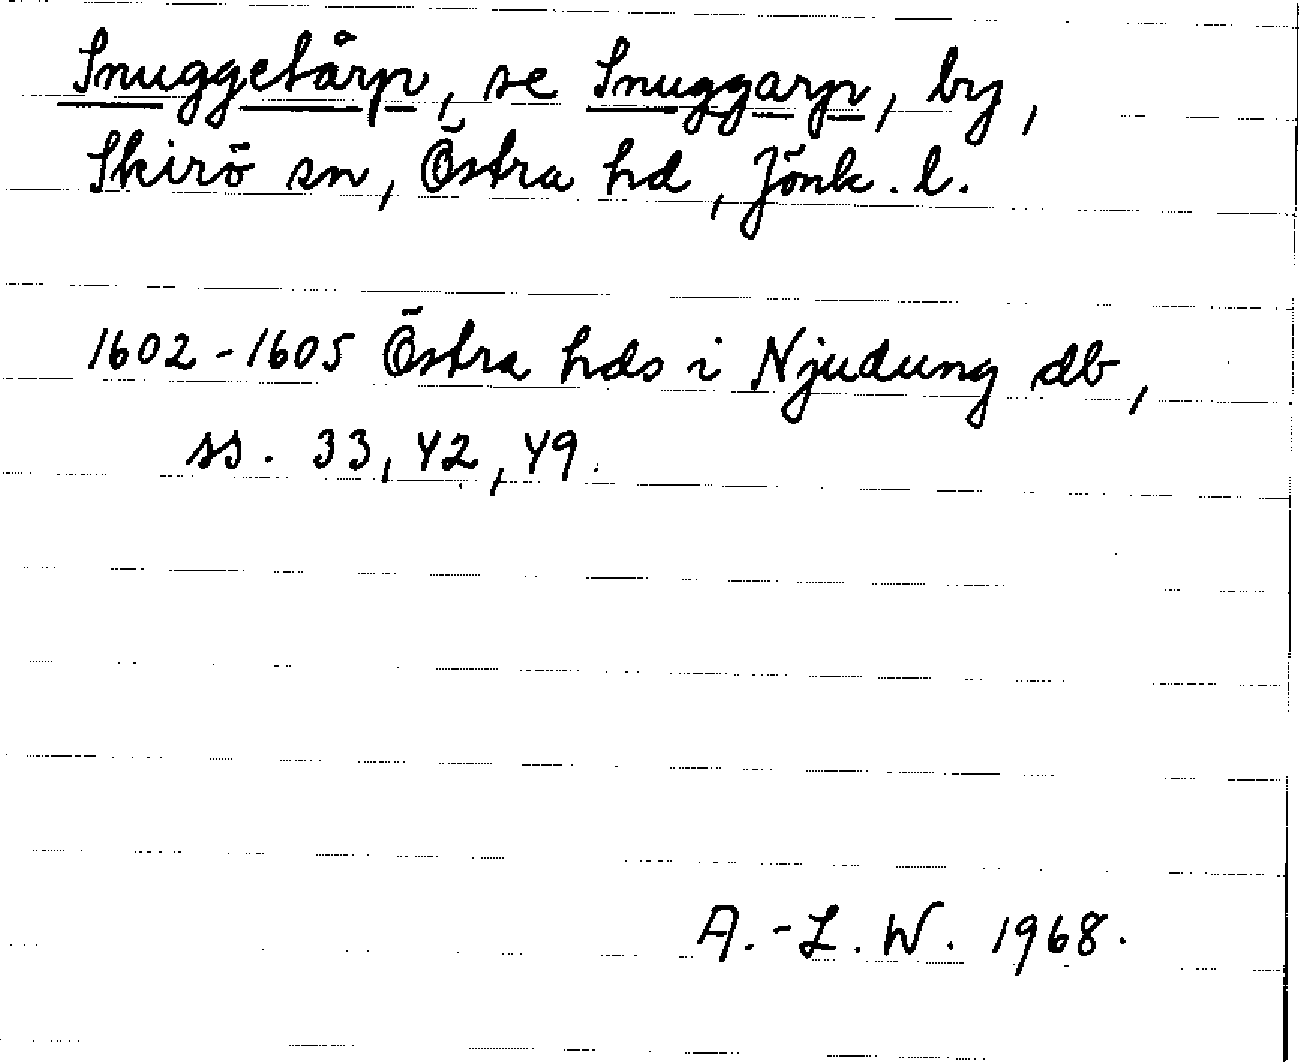 Snuggetårp, se Snuggarp, by,
Skirö sn, Östra hd, Jönk. l.
1602-1605 Östra hds i Njudung db,
ss. 33, 42, 49.
A.-L. W. 1968.